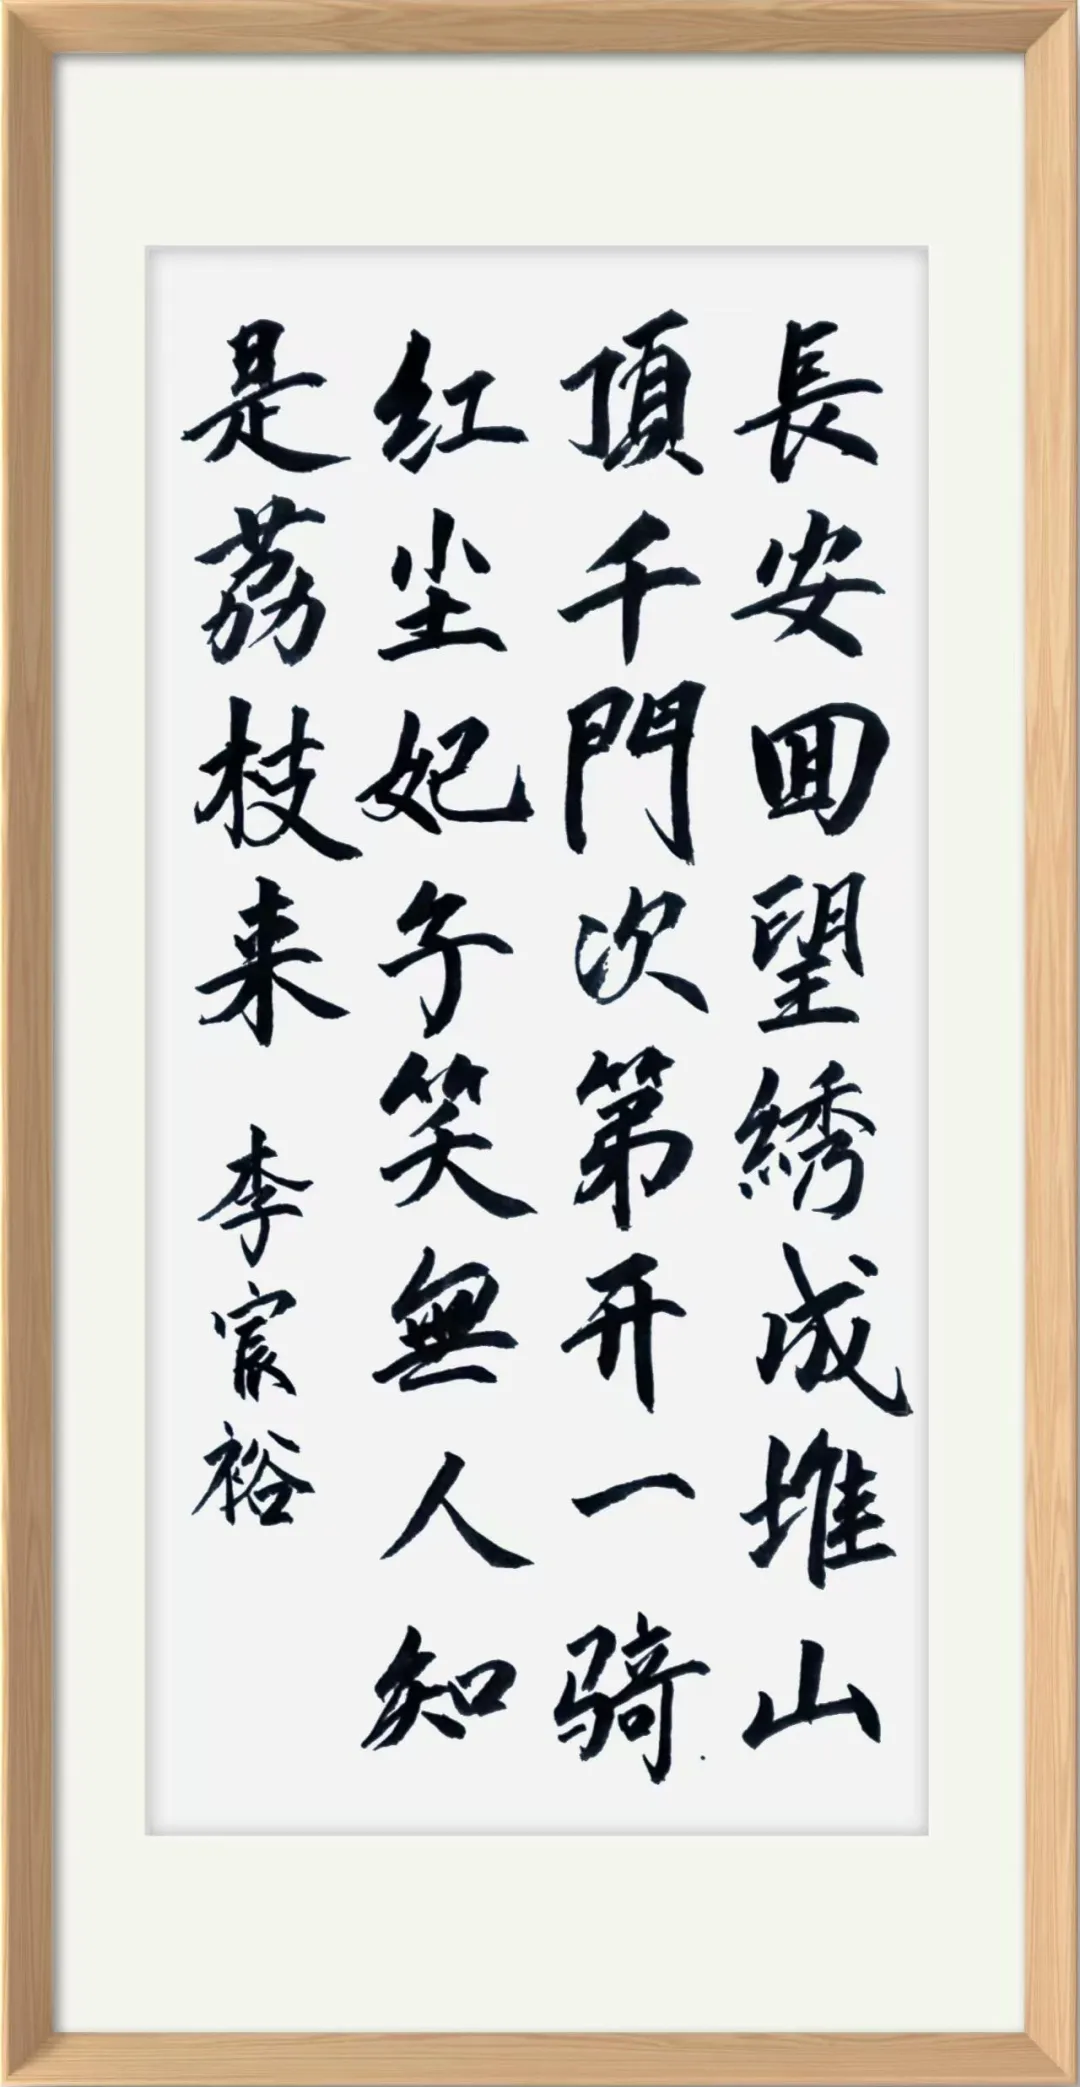 長安囬望綉成堆山
頂千門次第开一騎
红尘妃子笑無人知
是荔枝来 李宸裕